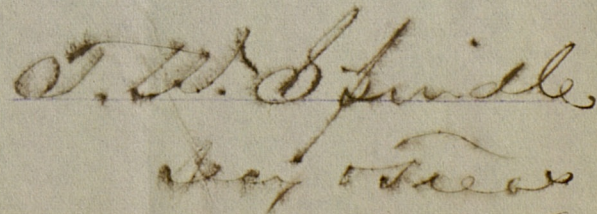 T. W. Spindle
Secy & Treas